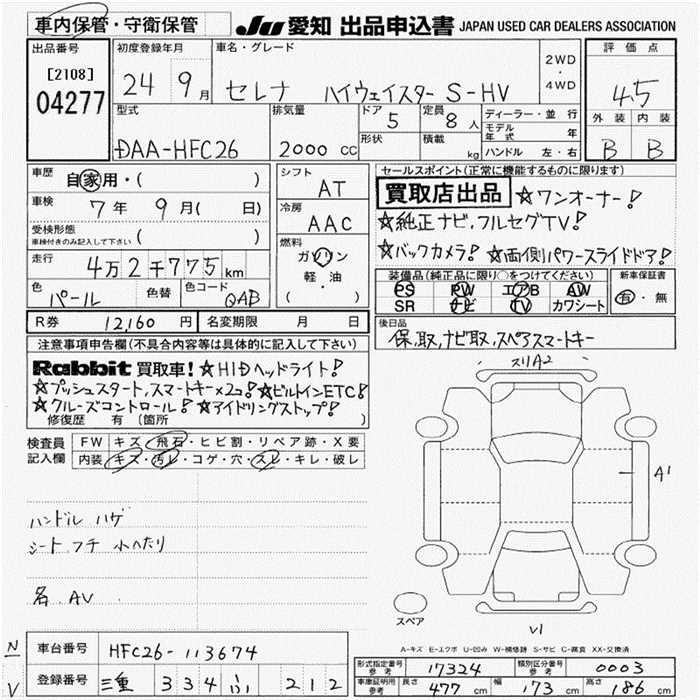 車内保管・守衛保管 JU 愛知 出品申込書 JAPAN USED CAR DEALERS ASSOCIATION
出品番号 初度登録年月 車名・グレード 2WD・4WD 評価点
[2108] 04277 24 9月 セレナ ハイウェイスター S-HV 4.5
型式 排気量 ドア 5 定員 8人 ディーラー・並行 外装 内装
DAA-HFC26 2000 CC 形状 積載 kg モデル年式 年 B B
ハンドル 左・右
車歴 自家用・( ) シフト AT セールスポイント(正常に機能するものに限ります)
車検 7年 9月 ( 日) 冷房 AAC 買取店出品 ☆ワンオーナー!
受検形態 車検付きのみ記入して下さい ( ) 燃料 ☆純正ナビ,フルセグTV!
走行 4万2千775km ガソリン 軽・油 ( ) ☆バックカメラ!☆両側パワースライドドア!
色 パール 色替 色コード QAB 装備品(純正品に限り○をつけてください) 新車保証書
PS PW エアB AW 有・無
SR ナビ TV カワシート
R券 12,160円 名変期限 月 日 後日品
注意事項申告欄(不具合内容等は具体的に記入して下さい) 保,取,ナビ取,スペアスマートキー
Rabbit 買取車!☆HIDヘッドライト!
☆プッシュスタート,スマートキー×2コ!☆ビルトインETC!
☆クルーズコントロール!☆アイドリングストップ!
修復歴 有 (箇所 )
検査員記入欄 FW キズ・飛石・ヒビ割・リペア跡・X要
内装 キズ・汚レ・コゲ・穴・スレ・キレ・破レ
スリA2
A1
ハンドル ハゲ
シート フチ 小ヘたり
名 AV
スペア
V1
A-キズ E-エクボ U-凹み W-補修跡 S-サビ C-腐食 XX-交換済
N
V
車台番号 HFC26-113674
登録番号 三重 334 ふ 212
型式指定番号 参考 17324 類別区分番号 参考 0003
車庫証明用 参考 長さ 477cm 幅 173cm 高さ 186cm